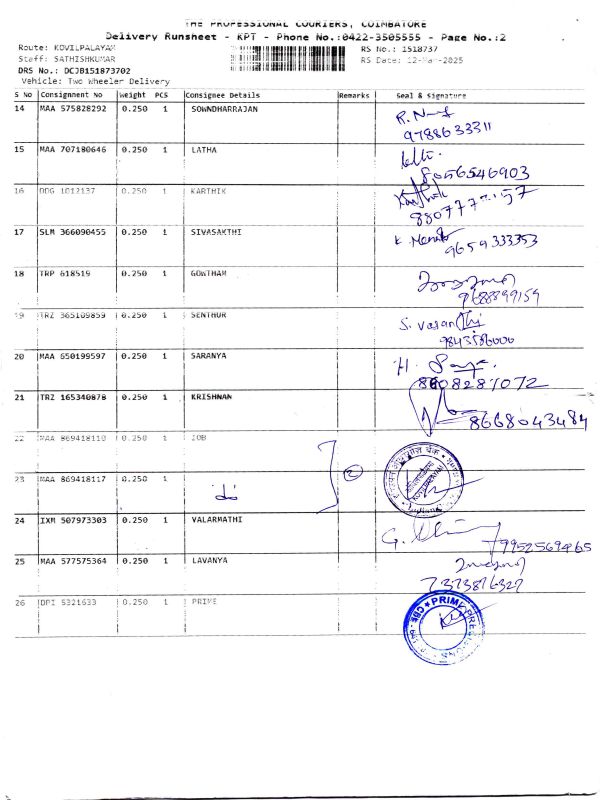 THE PROFESSIONAL COURIERS, COIMBATORE
Delivery Runsheet - KPT - Phone No.:0422-3505555 - Page No.:2
Route: KOVILPALAYAM RS No.: 1518737
Staff: SATHISHKUMAR RS Date: 12-Mar-2025
DRS No.: DCJB151873702
Vehicle: Two Wheeler Delivery
S No Consignment No Weight PCS Consignee Details Remarks Seal & Signature
14 MAA 575828292 0.250 1 SOWNDHARRAJAN
9788633311
15 MAA 707180646 0.250 1 LATHA
8056546903
16 1012137 0.250 1 KARTHIK
17 SLM 366090455 0.250 1 SIVASAKTHI K.
9659333353
18 TRP 618519 0.250 1 GOWTHAM
9688899159
19 TRZ 365109859 0.250 1 SENTHUR S. Vasanthi
20 MAA 650199597 0.250 1 SARANYA H.
8608287072
21 TRZ 165340878 0.250 1 KRISHNAN
8668043484
22 MAA 869418110 0.250 1 IOB
2
23 MAA 869418117 0.250 1 do
24 IXM 507973303 0.250 1 VALARMATHI G.
9952569465
25 MAA 577575364 0.250 1 LAVANYA
7373876327
26 DPI 5321633 0.250 1 PRIME PRIME